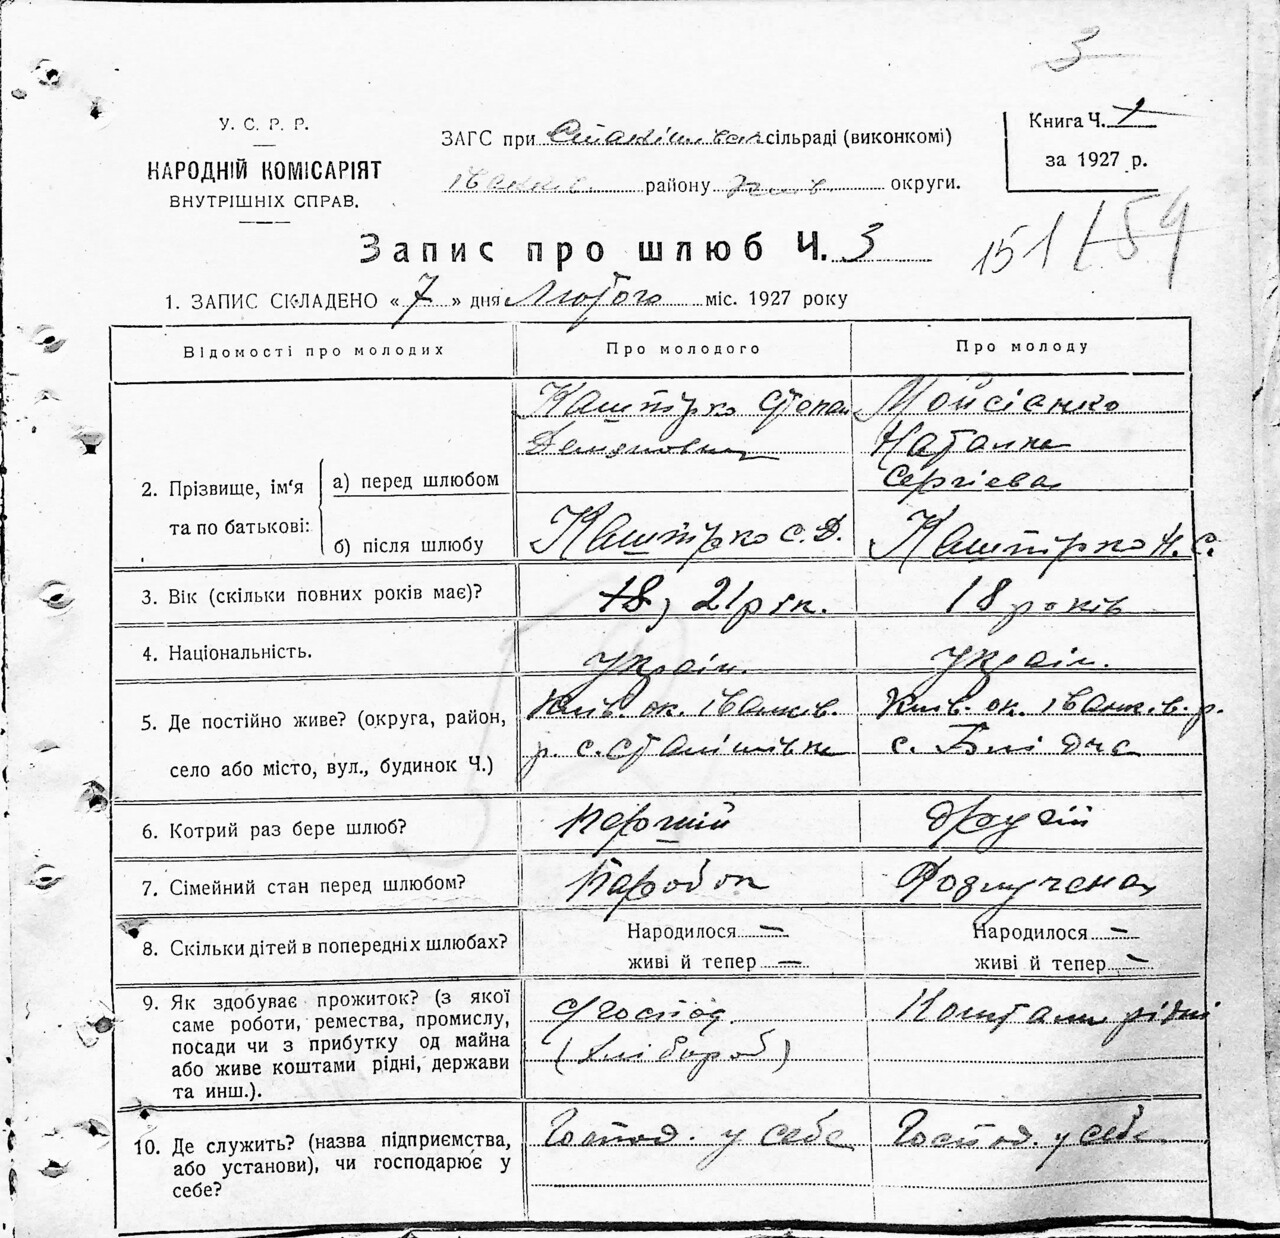 3
У. С. Р. Р.
НАРОДНІЙ КОМІСАРІЯТ
ВНУТРІШНІХ СПРАВ.
ЗАГС при сільраді (виконкомі)
Іванків. району Київ. округи.
Книга Ч. 1
за 1927 р.
151/54
Запис про шлюб Ч. 3
1. ЗАПИС СКЛАДЕНО «7» дня Лютого міс. 1927 року
Відомості про молодих Про молодого Про молоду
2. Прізвище, ім'я та по батькові:
а) перед шлюбом
Каштірко Степан
Демянович
Мойсіенко
Наталка
Сергіева
б) після шлюбу
Каштірко С. Д.
Каштірко Н. С.
3. Вік (скільки повних років має)? 18, 21 рік. 18 років
4. Національність. україн. україн.
5. Де постійно живе? (округа, район, Київ. ок. Іванків. Київ. ок. Іванків. р.
село або місто, вул., будинок Ч.) р. с. с.
6. Котрий раз бере шлюб? Перший другий
7. Сімейний стан перед шлюбом? Паробок Розлучена
8. Скільки дітей в попередніх шлюбах? Народилося — Народилося —
живі й тепер — живі й тепер —
9. Як здобуває прожиток? (з якої
саме роботи, ремества, промислу,
посади чи з прибутку од майна
або живе коштами рідні, держави
та инш.).
(Хлібороб)
Коштами рідні
10. Де служить? (назва підприємства, Господ. у себе Господ. у себе
або установи), чи господарює у
себе?